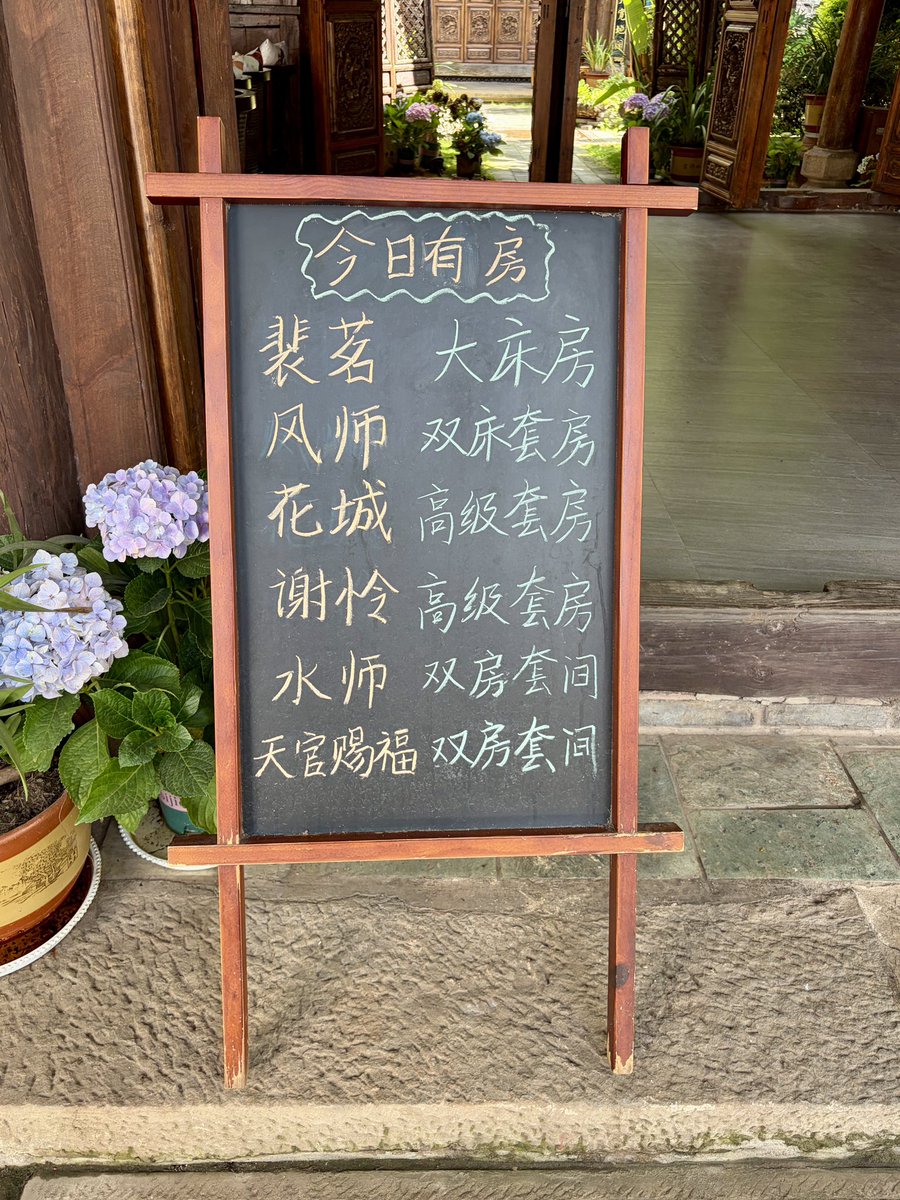 今日有房
裴茗 大床房
风师 双床套房
花城 高级套房
谢怜 高级套房
水师 双房套间
天官赐福 双房套间